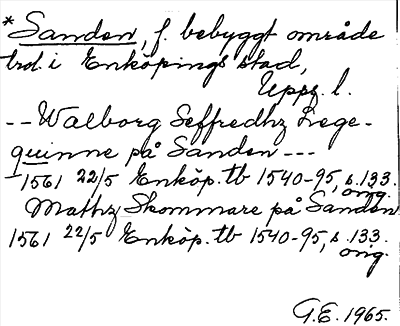 *Sanden, f. bebyggt område
trol. i Enköpings stad,
Upps. l.
-- Walborg Seffredhz Lege-
quinne på Sanden ---
1561 22/5 Enköp. tb 1540-95, s. 133.
orig.
Mathz Skommare på Sanden
1561 22/5 Enköp. tb 1540-95, s. 133.
orig.
G.E. 1965.